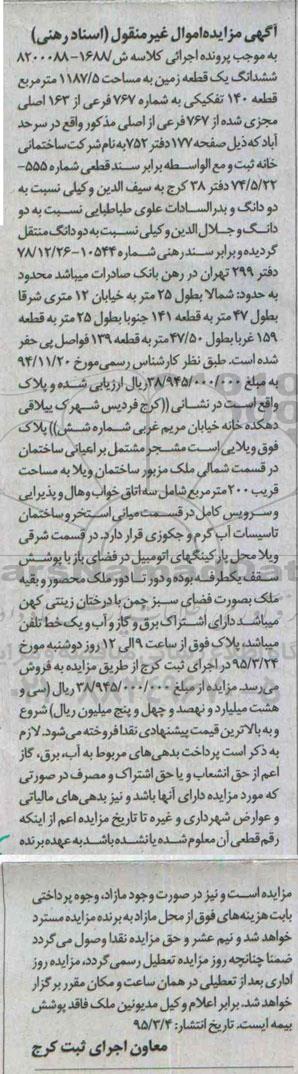 آگهی مزایده اموال غیرمنقول (اسناد رهنی)
به موجب پرونده اجرائی کلاسه ش/۱۶۸۸-۸۲۰۰۰۸۸
ششدانگ یک قطعه زمین به مساحت ۱۱۸۷/۵ مترمربع
قطعه ۱۴۰ تفکیکی به شماره ۷۶۷ فرعی از ۱۶۳ اصلی
مجزی شده از ۷۶۷ فرعی از اصلی مذکور واقع در سرحد
آباد که ذیل صفحه ۱۷۷ دفتر ۷۵۲ به نام شرکت ساختمانی
خانه ثبت و مع الواسطه برابر سند قطعی شماره ۵۵۵-
۷۴/۵/۲۲ دفتر ۳۸ کرج به سیف الدین وکیلی نسبت به
دو دانگ و بدرالسادات علوی طباطبایی نسبت به دو
دانگ و جلال الدین وکیلی نسبت به دو دانگ منتقل
گردیده و برابر سند رهنی شماره ۱۰۵۴۴-۷۸/۱۲/۲۶
دفتر ۲۹۹ تهران در رهن بانک صادرات میباشد محدود
به حدود: شمالا بطول ۲۵ متر به خیابان ۱۲ متری شرقا
بطول ۴۷ متر به قطعه ۱۴۱ جنوبا بطول ۲۵ متر به قطعه
۱۵۹ غربا بطول ۴۷/۵۰ متر به قطعه ۱۳۹ فواصل پی حفر
شده است. طبق نظر کارشناس رسمی مورخ ۹۴/۱۱/۲۰
به مبلغ ۳۸/۹۴۵/۰۰۰/۰۰۰ ریال ارزیابی شده و پلاک
واقع است در نشانی ((کرج فردیس شهرک ییلاقی
دهکده خانه خیابان مریم غربی شماره شش)) پلاک
فوق ویلایی است مشجر مشتمل بر اعیانی ساختمان
در قسمت شمالی ملک مزبور ساختمان ویلا به مساحت
قریب ۲۰۰ مترمربع شامل سه اتاق خواب وهال و پذیرایی
و سرویس کامل در قسمت میانی استخر و ساختمان
تاسیسات آب گرم و جکوزی قرار دارد. در قسمت شرقی
ویلا محل پارکینگهای اتومبیل در فضای باز با پوشش
سقف یکطرفه بوده و دور تا دور ملک محصور و بقیه
ملک بصورت فضای سبز چمن با درختان زینتی کهن
میباشد دارای اشتراک برق و گاز و آب و یک خط تلفن
میباشد پلاک فوق از ساعت ۹ الی ۱۲ روز دوشنبه مورخ
۹۵/۳/۲۴ در اجرای ثبت کرج از طریق مزایده به فروش
می‌رسد. مزایده از مبلغ ۳۸/۹۴۵/۰۰۰/۰۰۰ ریال (سی و
هشت میلیارد و نهصد و چهل و پنج میلیون ریال) شروع
و به بالاترین قیمت پیشنهادی نقدا فروخته می‌شود. لازم
به ذکر است پرداخت بدهی‌های مربوط به آب، برق، گاز
اعم از حق انشعاب و یا حق اشتراک و مصرف در صورتی
که مورد مزایده دارای آنها باشد و نیز بدهی‌های مالیاتی
و عوارض شهرداری و غیره تا تاریخ مزایده اعم از اینکه
رقم قطعی آن معلوم شده یا نشده باشد به عهده برنده
مزایده است و نیز در صورت وجود مازاد، وجوه پرداختی
بابت هزینه‌های فوق از محل مازاد به برنده مزایده مسترد
خواهد شد و نیم عشر و حق مزایده نقدا وصول می‌گردد
ضمنا چنانچه روز مزایده تعطیل رسمی گردد، مزایده روز
اداری بعد از تعطیلی در همان ساعت و مکان مقرر برگزار
خواهد شد. برابر اعلام وکیل مدیونین ملک فاقد پوشش
بیمه ایست. تاریخ انتشار: ۹۵/۳/۴
معاون اجرای ثبت کرج